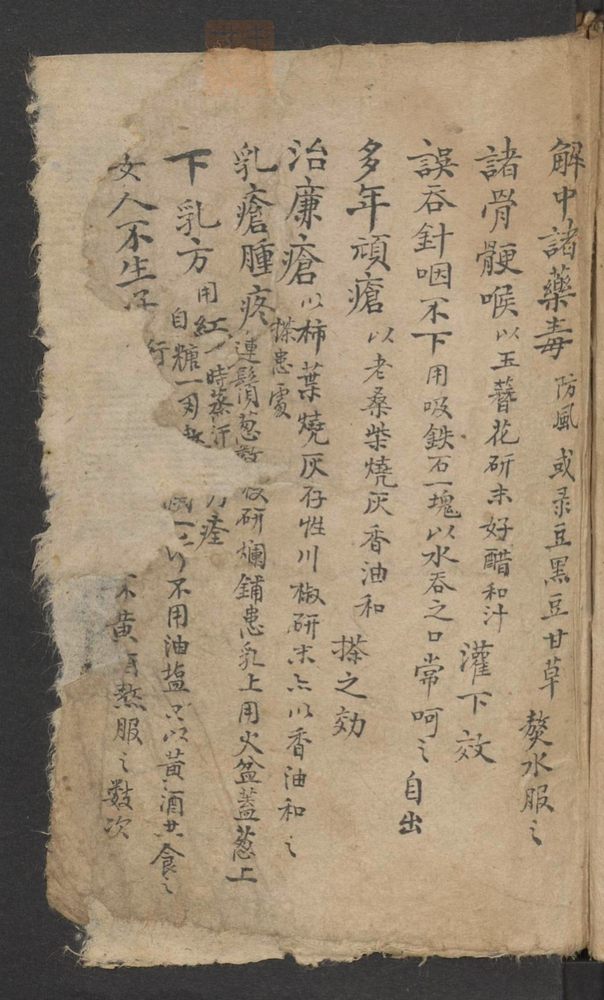 解中諸藥毒 防風 或彔豆黑豆甘草 熬水服之
諸骨骾喉 以玉簪花研末好醋和汁 灌下效
誤吞針咽不下用吸鉄石一塊以水吞之口常呵之自出
多年頑瘡 以老桑柴燒灰香油和 搽之効
治廉瘡 以柿葉燒灰存性川椒研末亦以香油和之
搽患處
乳瘡腫疼 連鬚葱 研爛鋪患乳上用火盆蓋葱上
時蒸汗 痊
下乳方 用紅 不用油塩只以黃酒共食之
自糖一
女人不生子 行 黃 熬服之數次